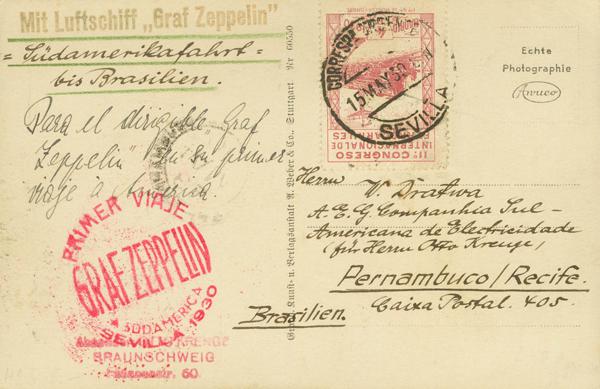 Mit Luftschiff „Graf Zeppelin"
= Südamerikafahrt =
bis Brasilien.
Para el dirigible „Graf
Zeppelin" en su primer
viaje à America.
PRIMER VIAJE
GRAF ZEPPELIN
A SUDAMERICA
SEVILLA 1930
KRENGE
BRAUNSCHWEIG
50
Kunst- u. Verlagsanstalt A. Weber & Co., Stuttgart Nr 60550
CORRESPONDENCIA
15 MAY 30
SEVILLA
IIº CONGRESO
INTERNACIONAL DE
Echte
Photographie
Awuco
Herrn V. Dratwa
A. E. G. Companhia Sul-
Americana de Electricidade
(für Herrn Otto Krenge,)
Pernambuco/Recife.
Caixa Postal. 405.
Brasilien.